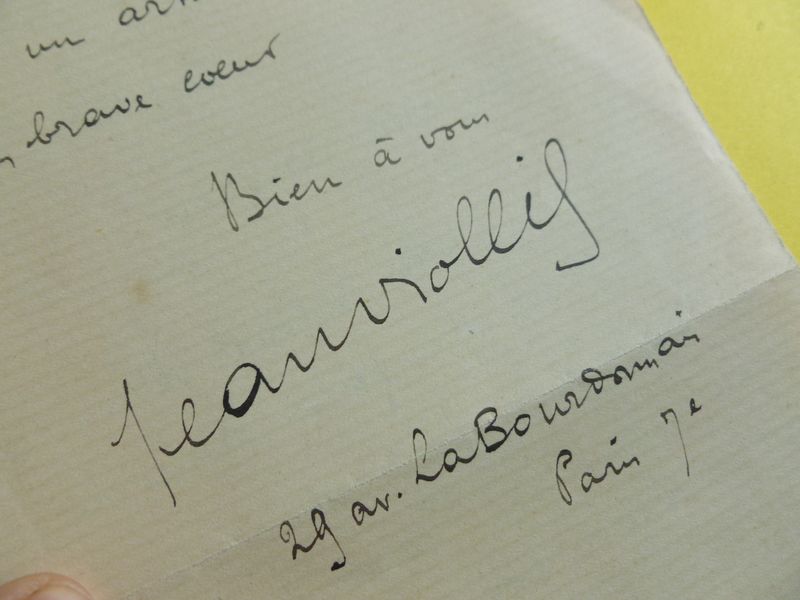 un
brave coeur
Bien à vous
Jean Viollis
29 av. La Bourdonnais
Paris 7e